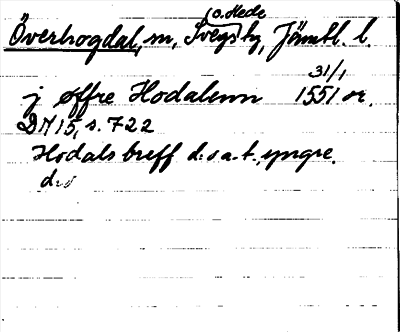 o. Hede
Överhogdal, sn, Svegs tg, Jämtl. l.
31/1
j øffre Hodalenn 1551 or.
DN 15, s. 722
Hodals breff d. o a. t., yngre.
d:o